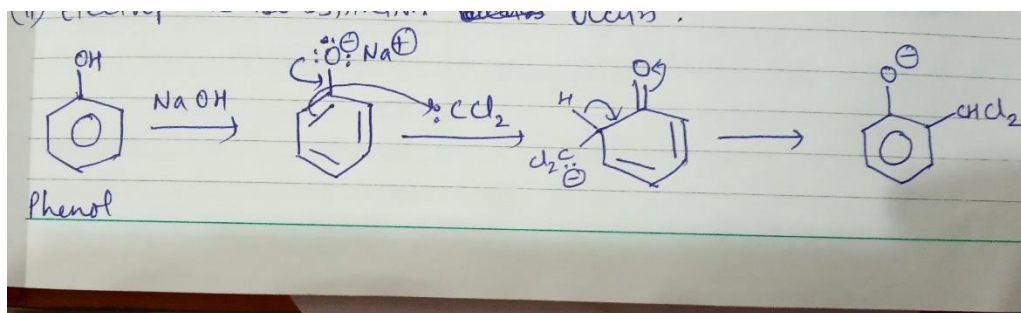 OH
NaOH
:Ö:⊖ Na⊕
:CCl₂
H
Cl₂C̈⊖
O
O⊖
CHCl₂
Phenol